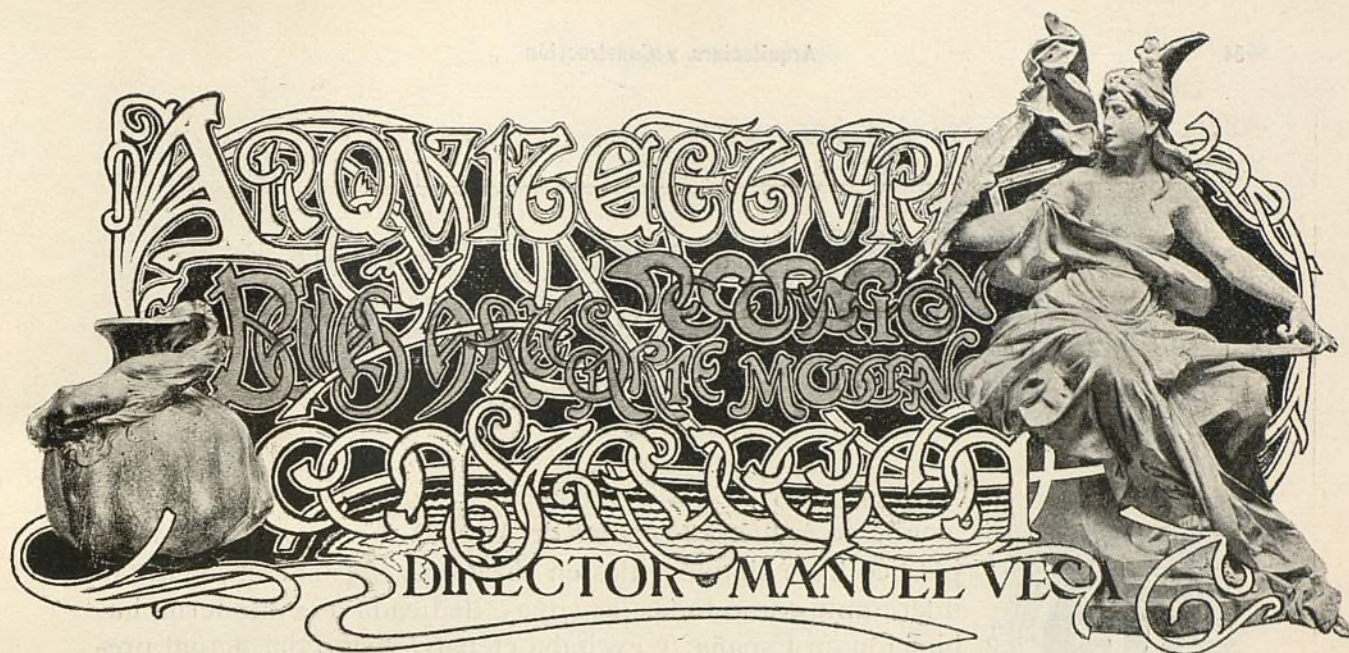 ARQVITECTVRA
BELLAS ARTES DECORACION
ARTE MODERNO
CONSTRVCCION
DIRECTOR · MANUEL VEGA